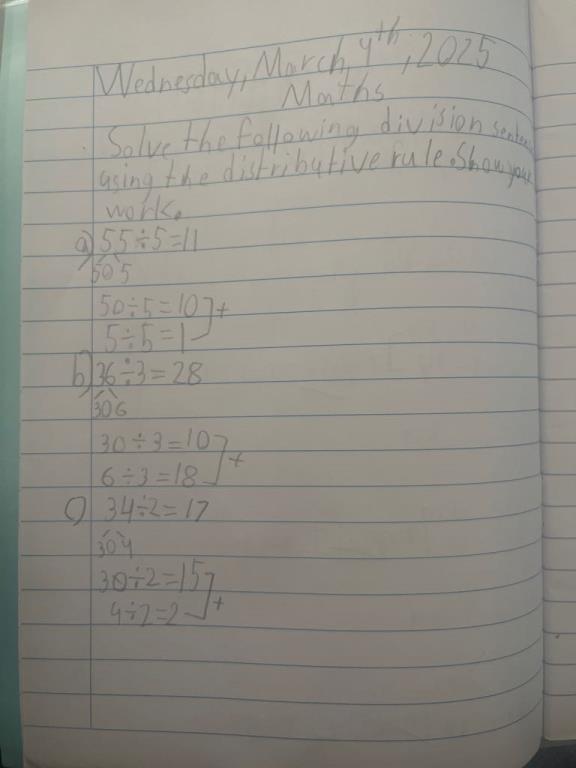 Wednesday, March, 4th, 2025
Maths
Solve the following division senten
using the distributive rule. Show your
work.
a) 55÷5=11
50 5
50÷5=10 ] +
5÷5=1
b) 36÷3=28
30 6
30÷3=10 ] +
6÷3=18
c) 34÷2=17
30 4
30÷2=15 ] +
4÷2=2